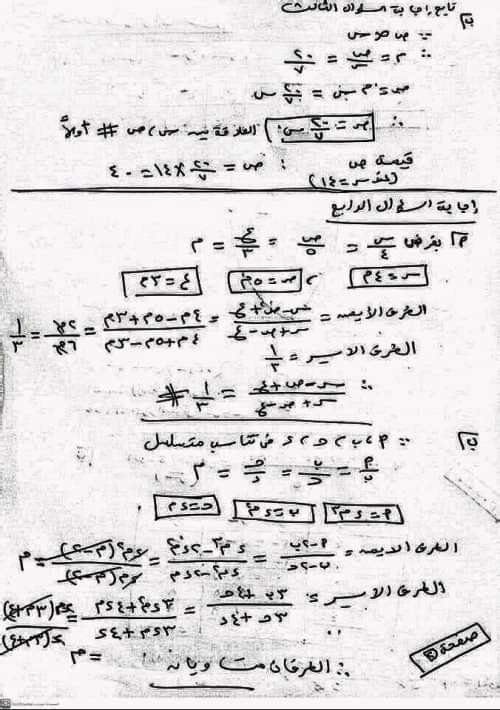 تابع إجابة السؤال الثالث
ب] ∵ ص ∝ س
∴ م = ص/س = ٢٠/٧
ص = م س = ٢٠/٧ س
∴ ص = ٢٠/٧ س : العلاقة بين س، ص # أولاً
قيمة ص (عندما س = ١٤) : ص = ٢٠/٧ × ١٤ = ٤٠
إجابة السؤال الرابع
م] بفرض س/٤ = ص/٥ = ع/٣ = م
س = ٤م ، ص = ٥م ع = ٣م
الطرف الأيمن = (س - ص + ع)/(س + ص - ع) = (٤م - ٥م + ٣م)/(٤م + ٥م - ٣م) = ٢م/٦م = ١/٣
الطرف الايسر = ١/٣
∴ (س - ص + ع)/(س + ص - ع) = ١/٣ #
ب] ∵ م، ب، ح، ء في تناسب متسلسل
م/ب = ب/ح = ح/ء = م
م = ء م٣ ب = ء م٢ ح = ء م
الطرف الايمن = (م - ٢ب)/(ب - ٢ح) = (ء م٣ - ٢ء م٢)/(ء م٢ - ٢ء م) = ء م٢(م - ٢)/ء م(م - ٢) = م
الطرف الايسر = (٣ب + ٤ح)/(٣ح + ٤ء) = (٣ء م٢ + ٤ء م)/(٣ء م + ٤ء) = ء م(٣م + ٤)/ء(٣م + ٤)
= م
∴ الطرفان متساويان
صفحة